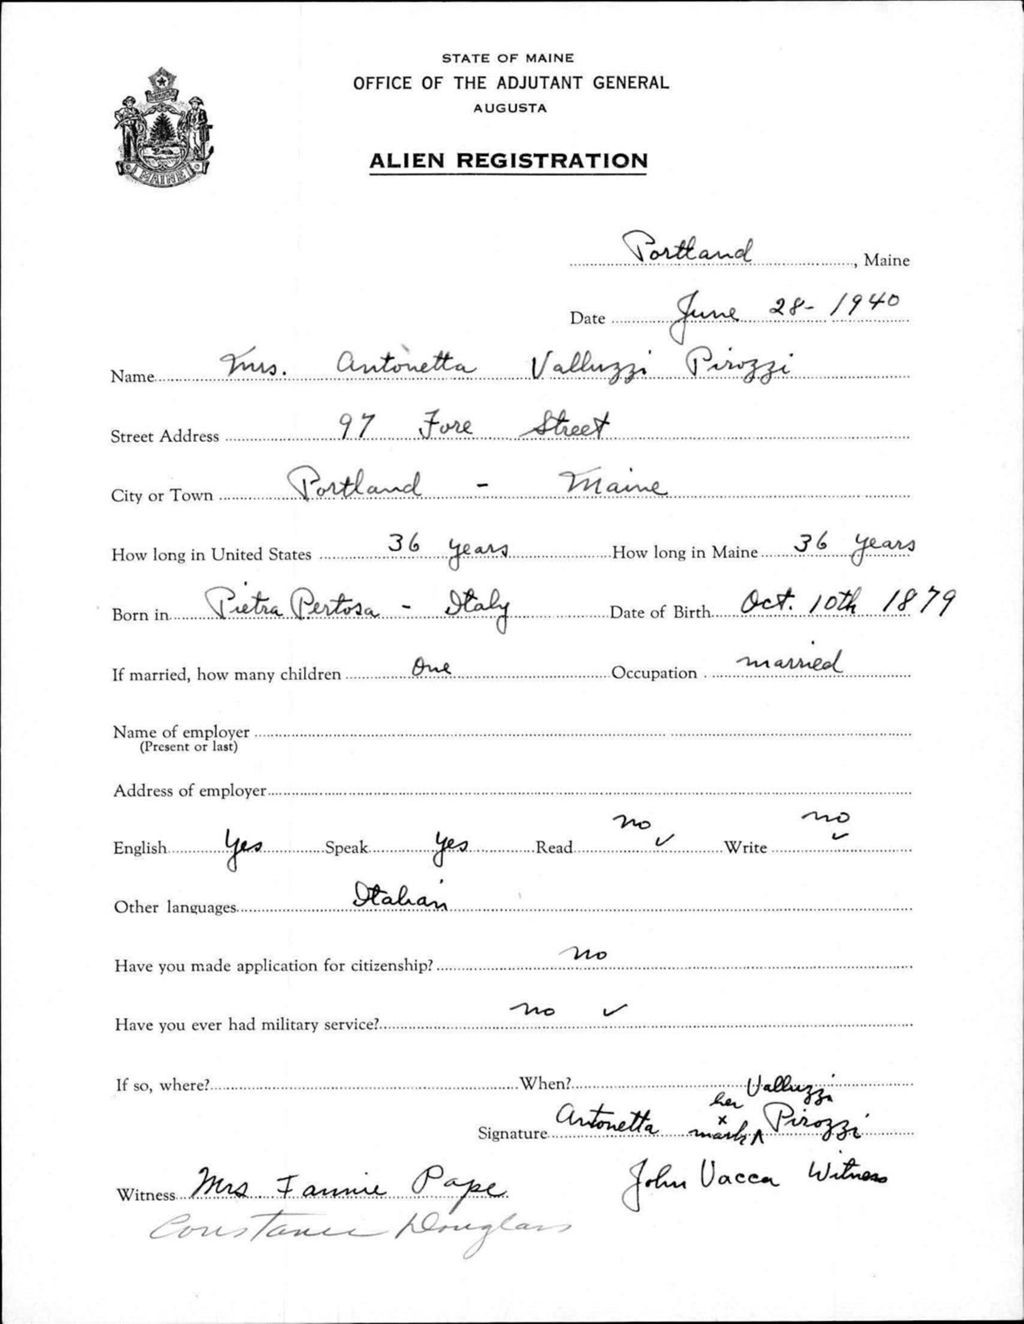 STATE OF MAINE
OFFICE OF THE ADJUTANT GENERAL
AUGUSTA
ALIEN REGISTRATION
MAINE
Portland, Maine
Date June 28- 1940
Name Mrs. Antonetta Valluzzi Pirozzi
Street Address 97 Fore Street
City or Town Portland - Maine
How long in United States 36 years How long in Maine 36 years
Born in Pietra Pertosa - Italy Date of Birth Oct. 10th 1879
If married, how many children One Occupation married
Name of employer
(Present or last)
Address of employer
English Yes Speak yes Read no ✓ Write no ✓
Other languages Italian
Have you made application for citizenship? no
Have you ever had military service? no ✓
If so, where? When?
her Valluzzi
Signature Antonetta x mark ^ Pirozzi
Witness Mrs. Fannie Pape John Vacca Witness
Constance Douglass